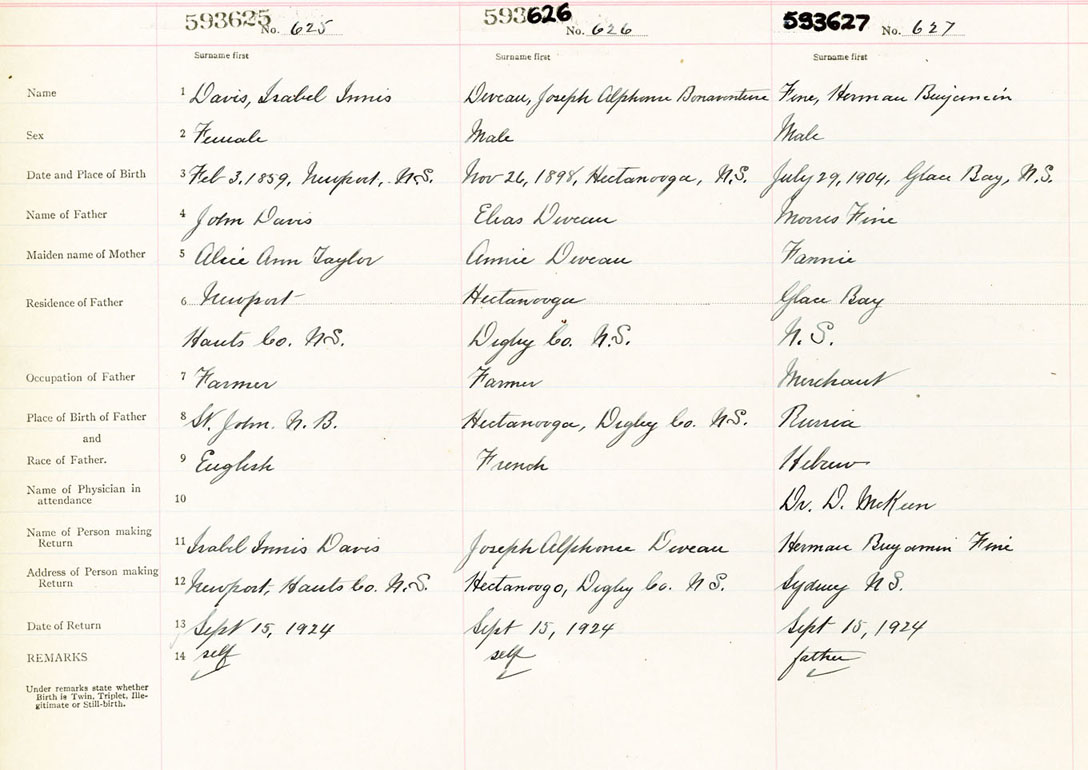 593625 No. 625 593626 No. 626 593627 No. 627
Surname first Surname first Surname first
Name 1 Davis, Isabel Innis Deveau, Joseph Alphonse Bonaventure Fine, Herman Benjamin
Sex 2 Female Male Male
Date and Place of Birth 3 Feb 3, 1859, Newport, N.S. Nov 26, 1898, Hectanooga, N.S. July 29, 1904, Glace Bay, N.S.
Name of Father 4 John Davis Elias Deveau Morris Fine
Maiden name of Mother 5 Alice Ann Taylor Annie Deveau Fannie
Residence of Father 6 Newport Hectanooga Glace Bay
Hants Co. N.S. Digby Co. N.S. N.S.
Occupation of Father 7 Farmer Farmer Merchant
Place of Birth of Father 8 St. John. N.B. Hectanooga, Digby Co. N.S. Russia
and
Race of Father. 9 English French Hebrew
Name of Physician in
attendance 10 Dr. D. McKeen
Name of Person making
Return 11 Isabel Innis Davis Joseph Alphonse Deveau Herman Benjamin Fine
Address of Person making
Return 12 Newport, Hants Co. N.S. Hectanoogo, Digby Co. N.S. Sydney N.S.
Date of Return 13 Sept 15, 1924 Sept 15, 1924 Sept 15, 1924
REMARKS 14 self self father
Under remarks state whether
Birth is Twin, Triplet, Ille-
gitimate or Still-birth.